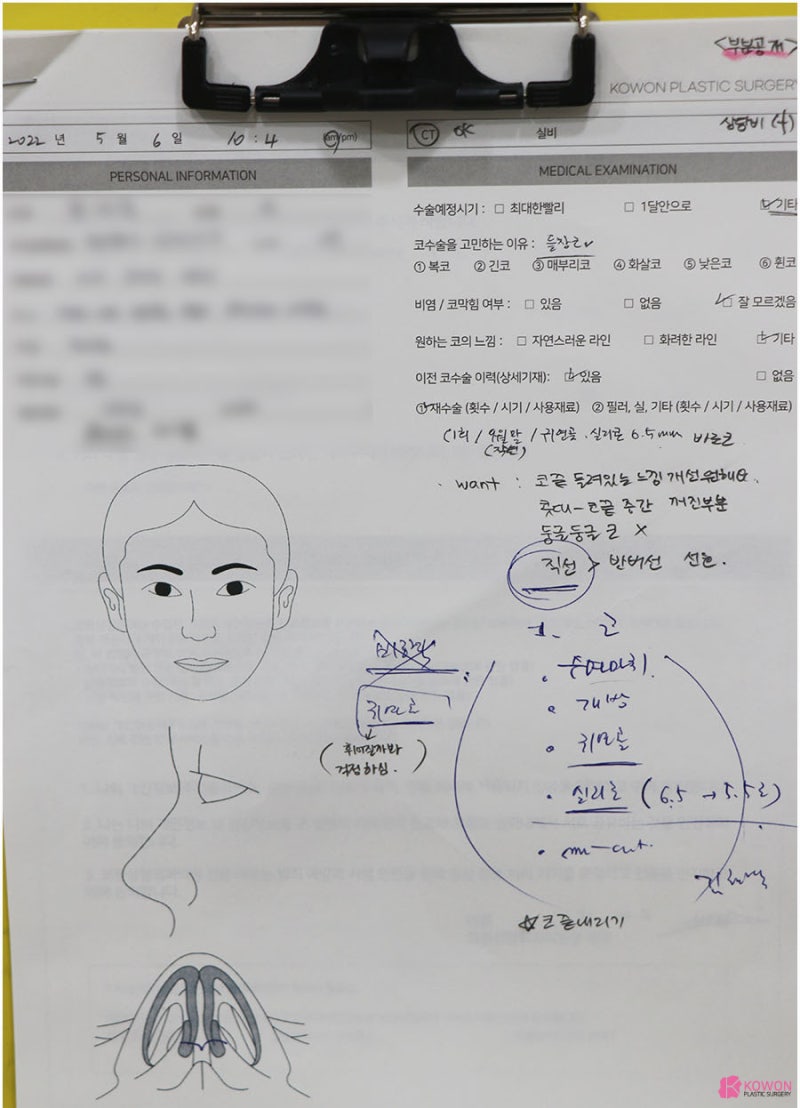 <부분공개>
KOWON PLASTIC SURGERY
2022 년 5 월 6 일 10 : 4 (am/pm)
CT OK 실비 상담비 (+)
PERSONAL INFORMATION
MEDICAL EXAMINATION
수술예정시기 : □ 최대한빨리 □ 1달안으로 □ 기타
코수술을 고민하는 이유 : 들창코
① 복코 ② 긴코 ③ 매부리코 ④ 화살코 ⑤ 낮은코 ⑥ 휜코
비염 / 코막힘 여부 : □ 있음 □ 없음 □ 잘 모르겠음
원하는 코의 느낌 : □ 자연스러운 라인 □ 화려한 라인 □ 기타
이전 코수술 이력(상세기재): □ 있음 □ 없음
① 재수술 (횟수 / 시기 / 사용재료) ② 필러, 실, 기타 (횟수 / 시기 / 사용재료)
(1회 / 9월말 / 귀연골, 실리콘 6.5mm 바르코
(작년)
want : 코끝 들려있는 느낌 개선원해요.
콧대-코끝 중간 꺼진부분
둥글둥글 코 X
직선 > 반버선 선호.
코
수면마취
개방
귀연골
귀연골
(휘어질까봐
걱정하심.)
실리콘 (6.5 → 5.5로)
코끝내리기
KOWON
PLASTIC SURGERY